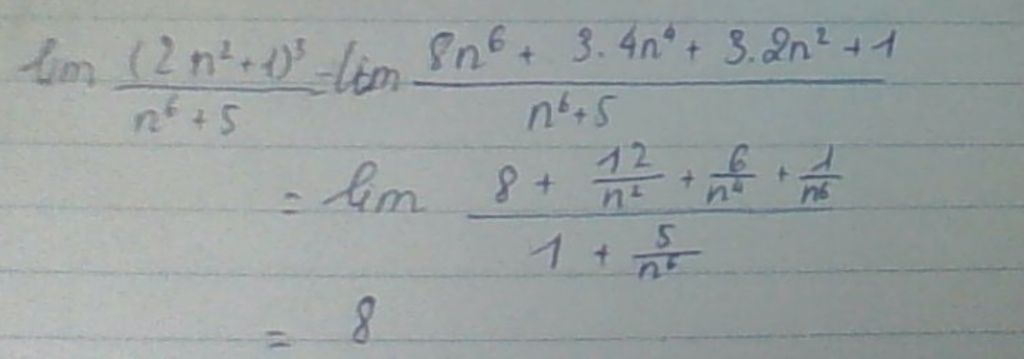 lim (2n²+1)³/(n⁶+5) = lim (8n⁶ + 3.4n⁴ + 3.2n² + 1)/(n⁶+5)
= lim (8 + 12/n² + 6/n⁴ + 1/n⁶)/(1 + 5/n⁶)
= 8